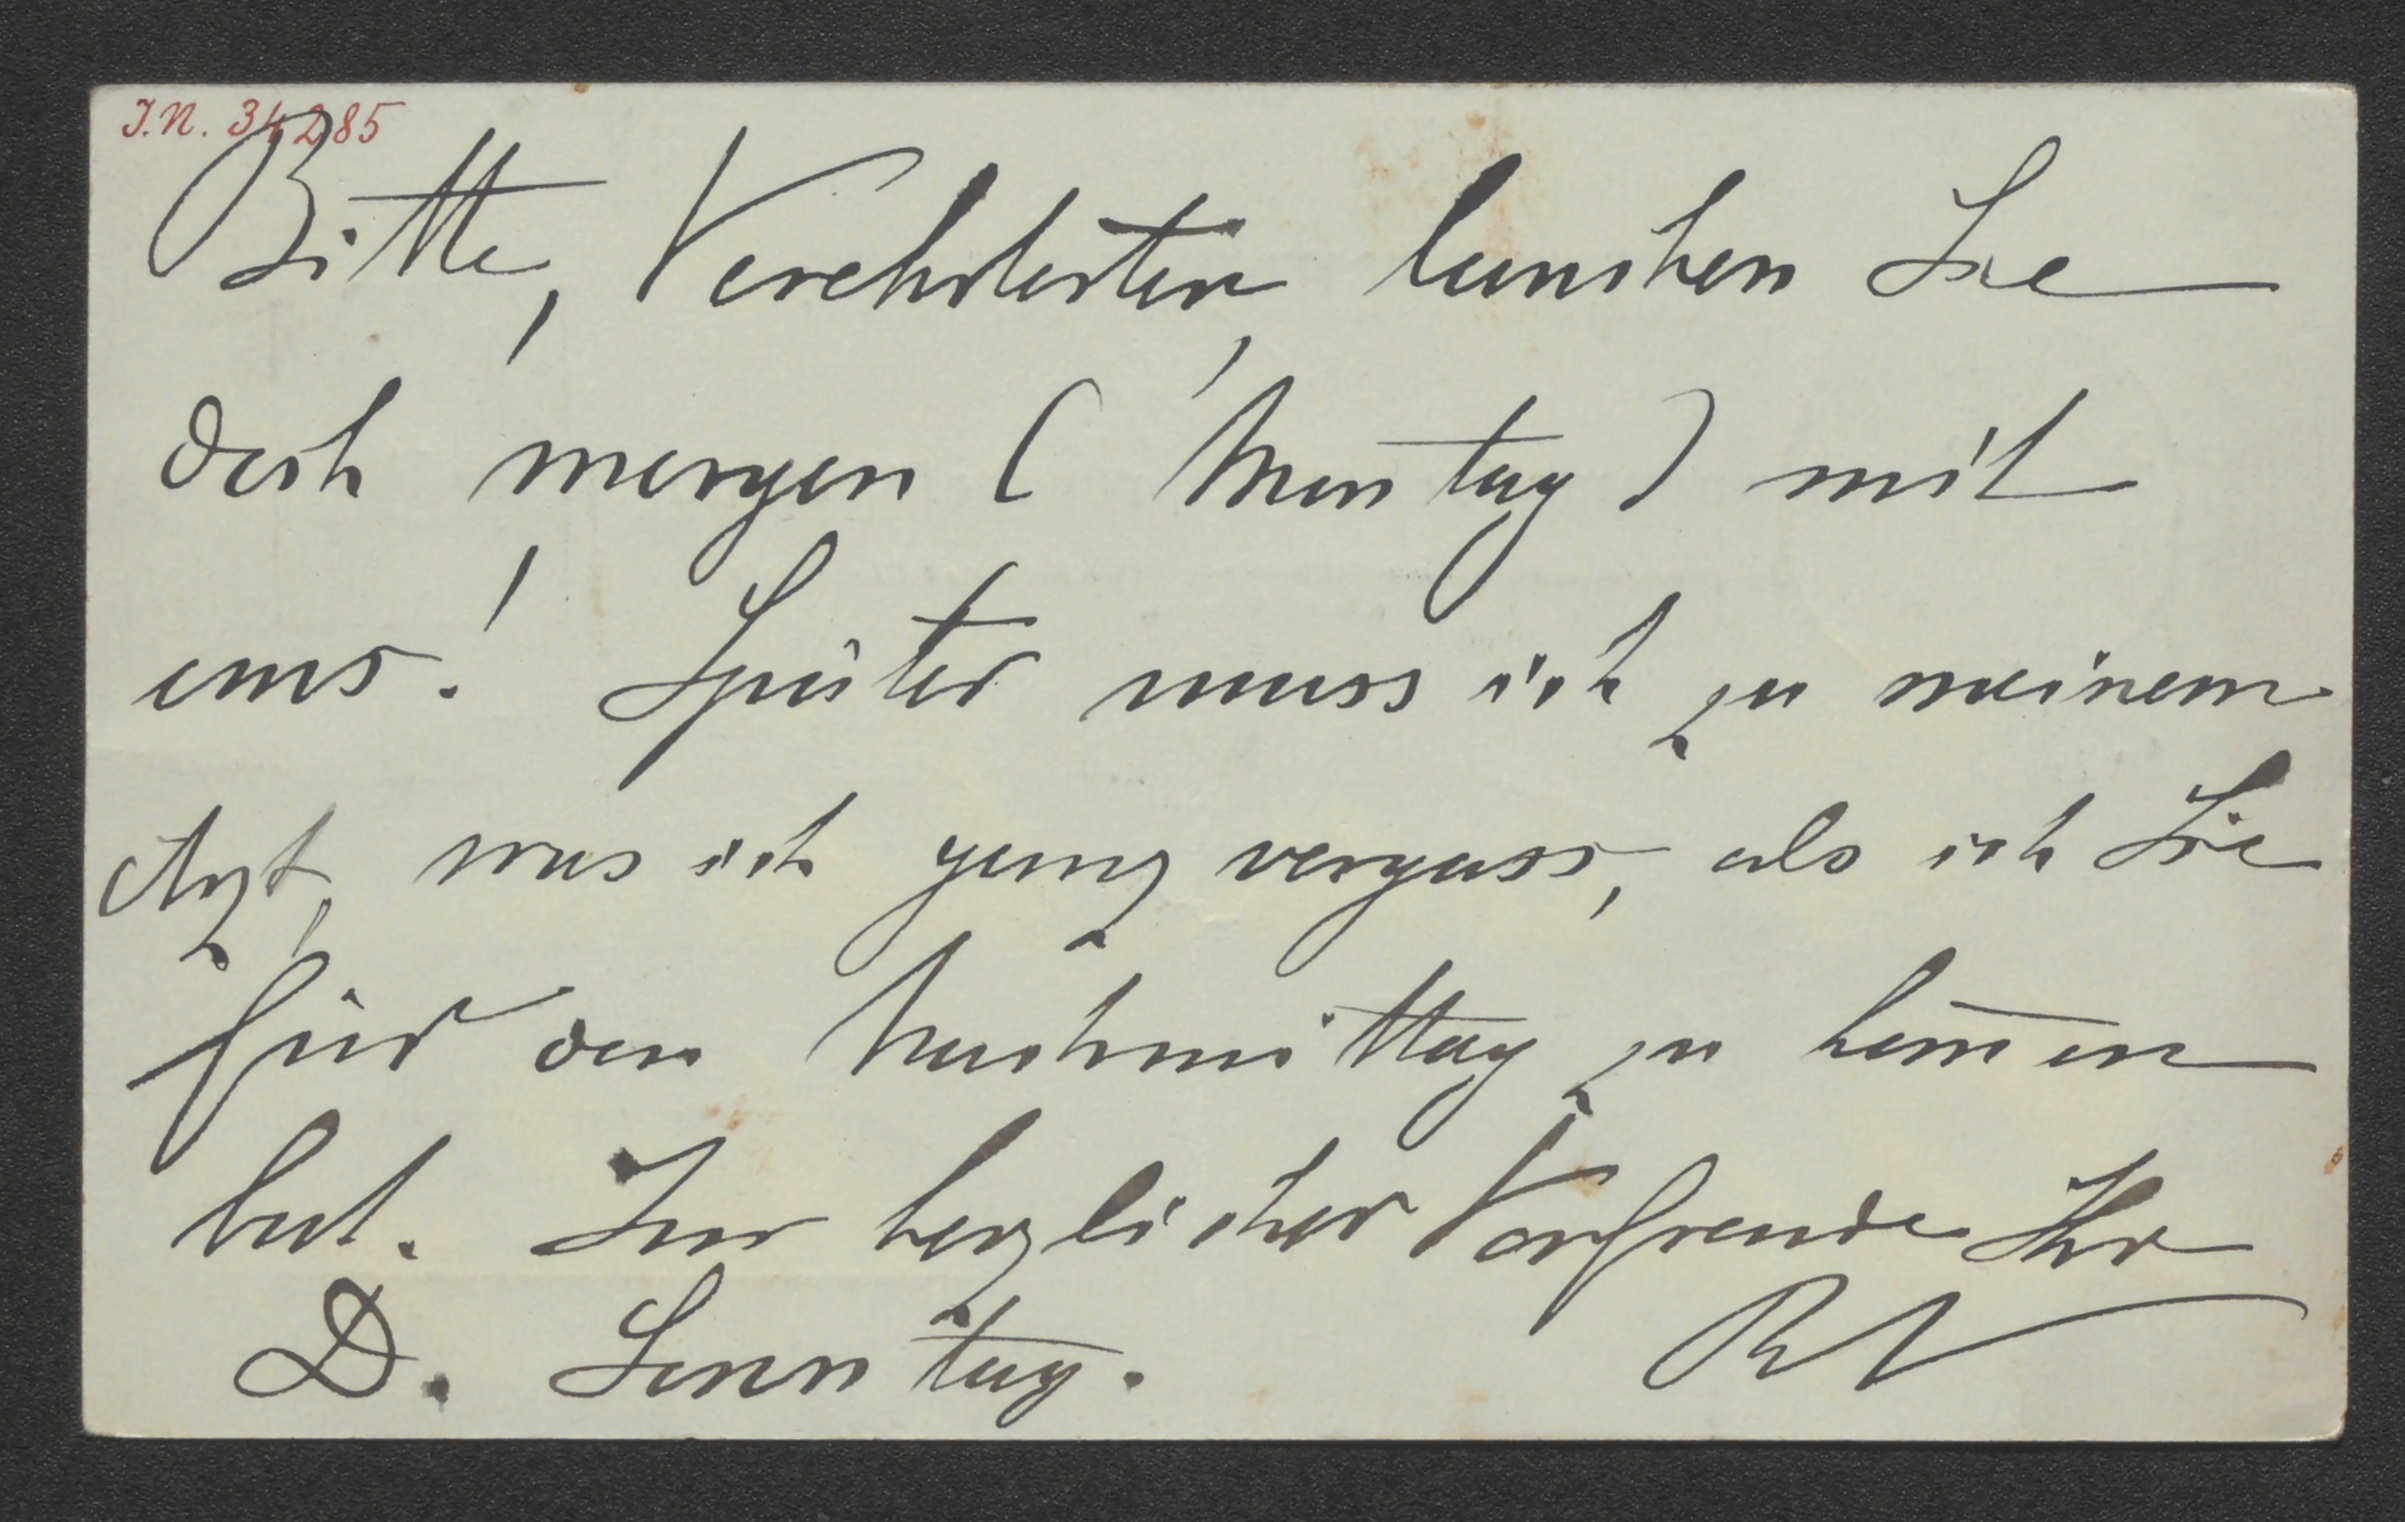 I.N. 34285
Bitte, Verehrtester, lunchen Sie
doch morgen (Montag) mit
uns! Später muss ich zu meinem
Arzt, was ich ganz vergass, als ich Sie
für den Nachmittag zu kom̅en
bat. In herzlicher Vorfreude Ihr
D. Sonntag. RV